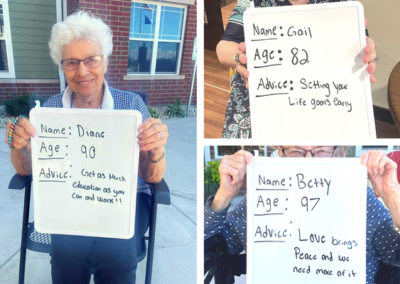 Name: Diane
Age: 90
Advice: Get as Much
education as you
can and work!!
Name: Gail
Age: 82
Advice: Setting your
Life goals early
Name: Betty
Age: 97
Advice: Love brings
Peace and we
need more of it